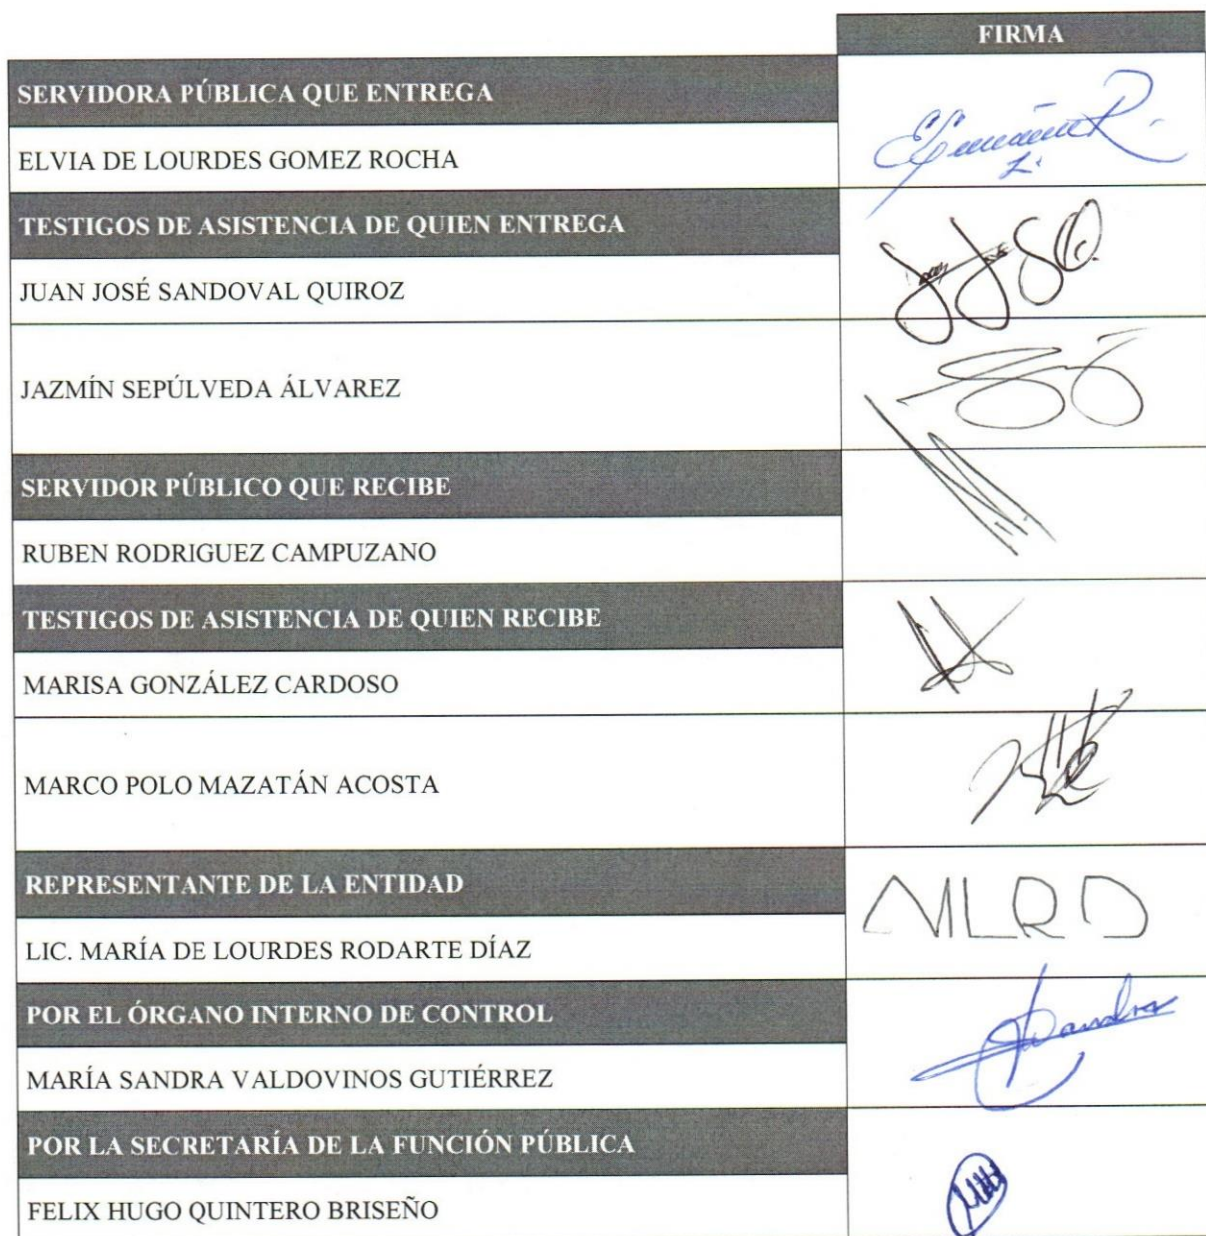 FIRMA
SERVIDORA PÚBLICA QUE ENTREGA
ELVIA DE LOURDES GOMEZ ROCHA
TESTIGOS DE ASISTENCIA DE QUIEN ENTREGA
JUAN JOSÉ SANDOVAL QUIROZ
JAZMÍN SEPÚLVEDA ÁLVAREZ
SERVIDOR PÚBLICO QUE RECIBE
RUBEN RODRIGUEZ CAMPUZANO
TESTIGOS DE ASISTENCIA DE QUIEN RECIBE
MARISA GONZÁLEZ CARDOSO
MARCO POLO MAZATÁN ACOSTA
REPRESENTANTE DE LA ENTIDAD
MLRD
LIC. MARÍA DE LOURDES RODARTE DÍAZ
POR EL ÓRGANO INTERNO DE CONTROL
MARÍA SANDRA VALDOVINOS GUTIÉRREZ
POR LA SECRETARÍA DE LA FUNCIÓN PÚBLICA
FELIX HUGO QUINTERO BRISEÑO